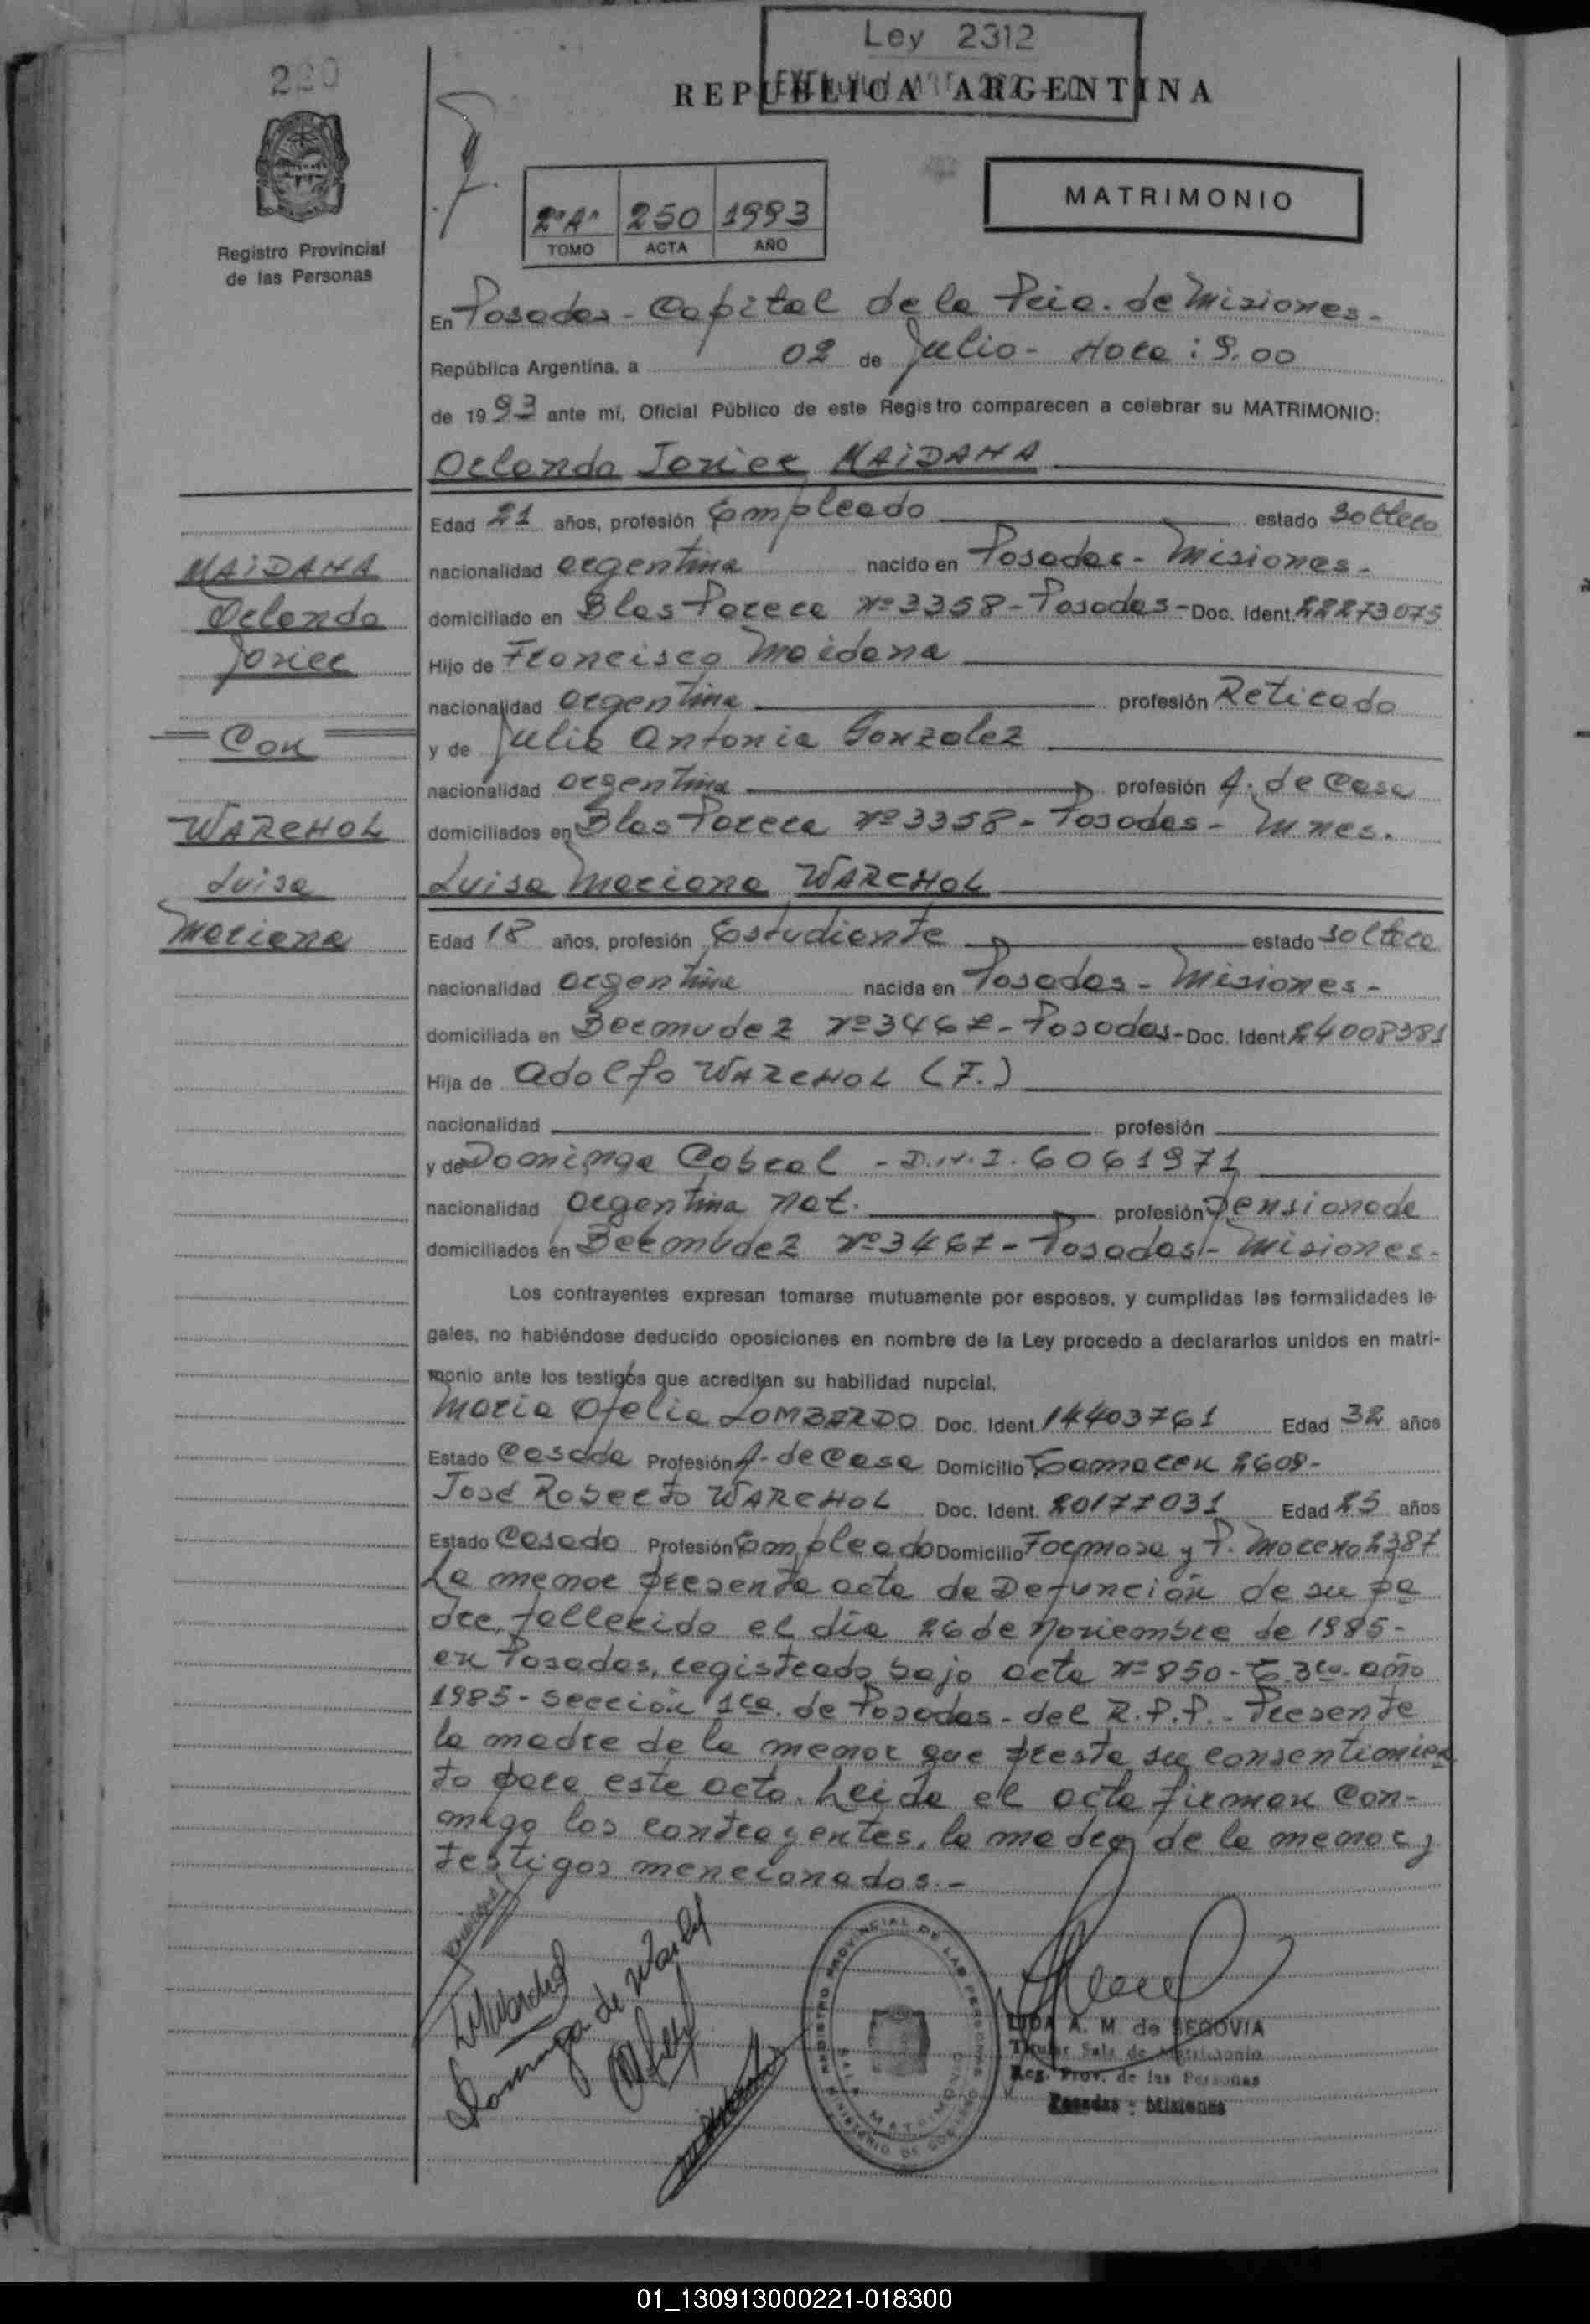 Ley 2312
220
REPUBLICA ARGENTINA
MATRIMONIO
2º"A" 250 1993
TOMO ACTA AÑO
Registro Provincial
de las Personas
En Posadas - Capital de la Pcia. de Misiones -
República Argentina, a 02 de Julio - Hora: 9,00
de 1993 ante mí, Oficial Público de este Registro comparecen a celebrar su MATRIMONIO:
Orlando Javier MAIDANA
Edad 21 años, profesión Empleado estado Soltero
MAIDANA
nacionalidad argentina nacido en Posadas - Misiones -
Orlando
domiciliado en Blas Parera Nº 3358 - Posadas - Doc. Ident. 22273075
Javier
Hijo de Francisco Maidana
nacionalidad argentina profesión Retirado
Con
y de Julia Antonia Gonzalez
nacionalidad argentina profesión A. de Casa
WARCHOL
domiciliados en Blas Parera Nº 3358 - Posadas - Mnes.
Luisa
Luisa Mariana WARCHOL
Mariana
Edad 18 años, profesión Estudiante estado soltera
nacionalidad argentina nacida en Posadas - Misiones -
domiciliada en Bermudez Nº 3467 - Posadas - Doc. Ident 24008381
Hija de Adolfo WARCHOL (F.)
nacionalidad profesión
y de Dominga Cabral - D.N.I. 6061971
nacionalidad argentina nat. profesión Pensionada
domiciliados en Bermudez Nº 3467 - Posadas - Misiones -
Los contrayentes expresan tomarse mutuamente por esposos, y cumplidas las formalidades le-
gales, no habiéndose deducido oposiciones en nombre de la Ley procedo a declararlos unidos en matri-
monio ante los testigos que acreditan su habilidad nupcial.
Maria Ofelia LOMBARDO Doc. Ident. 14403761 Edad 32 años
Estado Casada Profesión A. de Casa Domicilio 2608 -
José Roberto WARCHOL Doc. Ident. 20177031 Edad 25 años
Estado Casado Profesión Empleado Domicilio Formosa y P. Moreno 2387
La menor presenta acta de Defunción de su pa
dre, fallecido el día 26 de Noviembre de 1985 -
en Posadas, registrado bajo acta Nº 850 - T. 3ro. año
1985 - Sección 1ra. de Posadas - del R.P.P. - Presente
la madre de la menor que presta su consentimien
to para este acto. Leída el acta firman con-
migo los contrayentes, la madre de la menor y
testigos mencionados. -
Dominga de
REGISTRO PROVINCIAL DE LAS PERSONAS
SALA MATRIMONIO
MINISTERIO DE GOBIERNO
A. M. de SEGOVIA
Titular Sala de Matrimonio
Reg. Prov. de las Personas
Posadas - Misiones
01_130913000221-018300